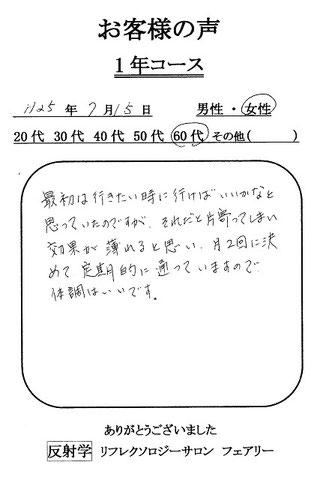 お客様の声
1年コース
H25 年 7 月 15 日 男性 ・ 女性
20代 30代 40代 50代 60代 その他( )
最初は行きたい時に行けばいいかなと
思っていたのですが、それだと片寄ってしまい
効果が薄れると思い、月2回に決
めて定期的に通っていますので
体調はいいです。
ありがとうございました
反射学 リフレクソロジーサロン フェアリー